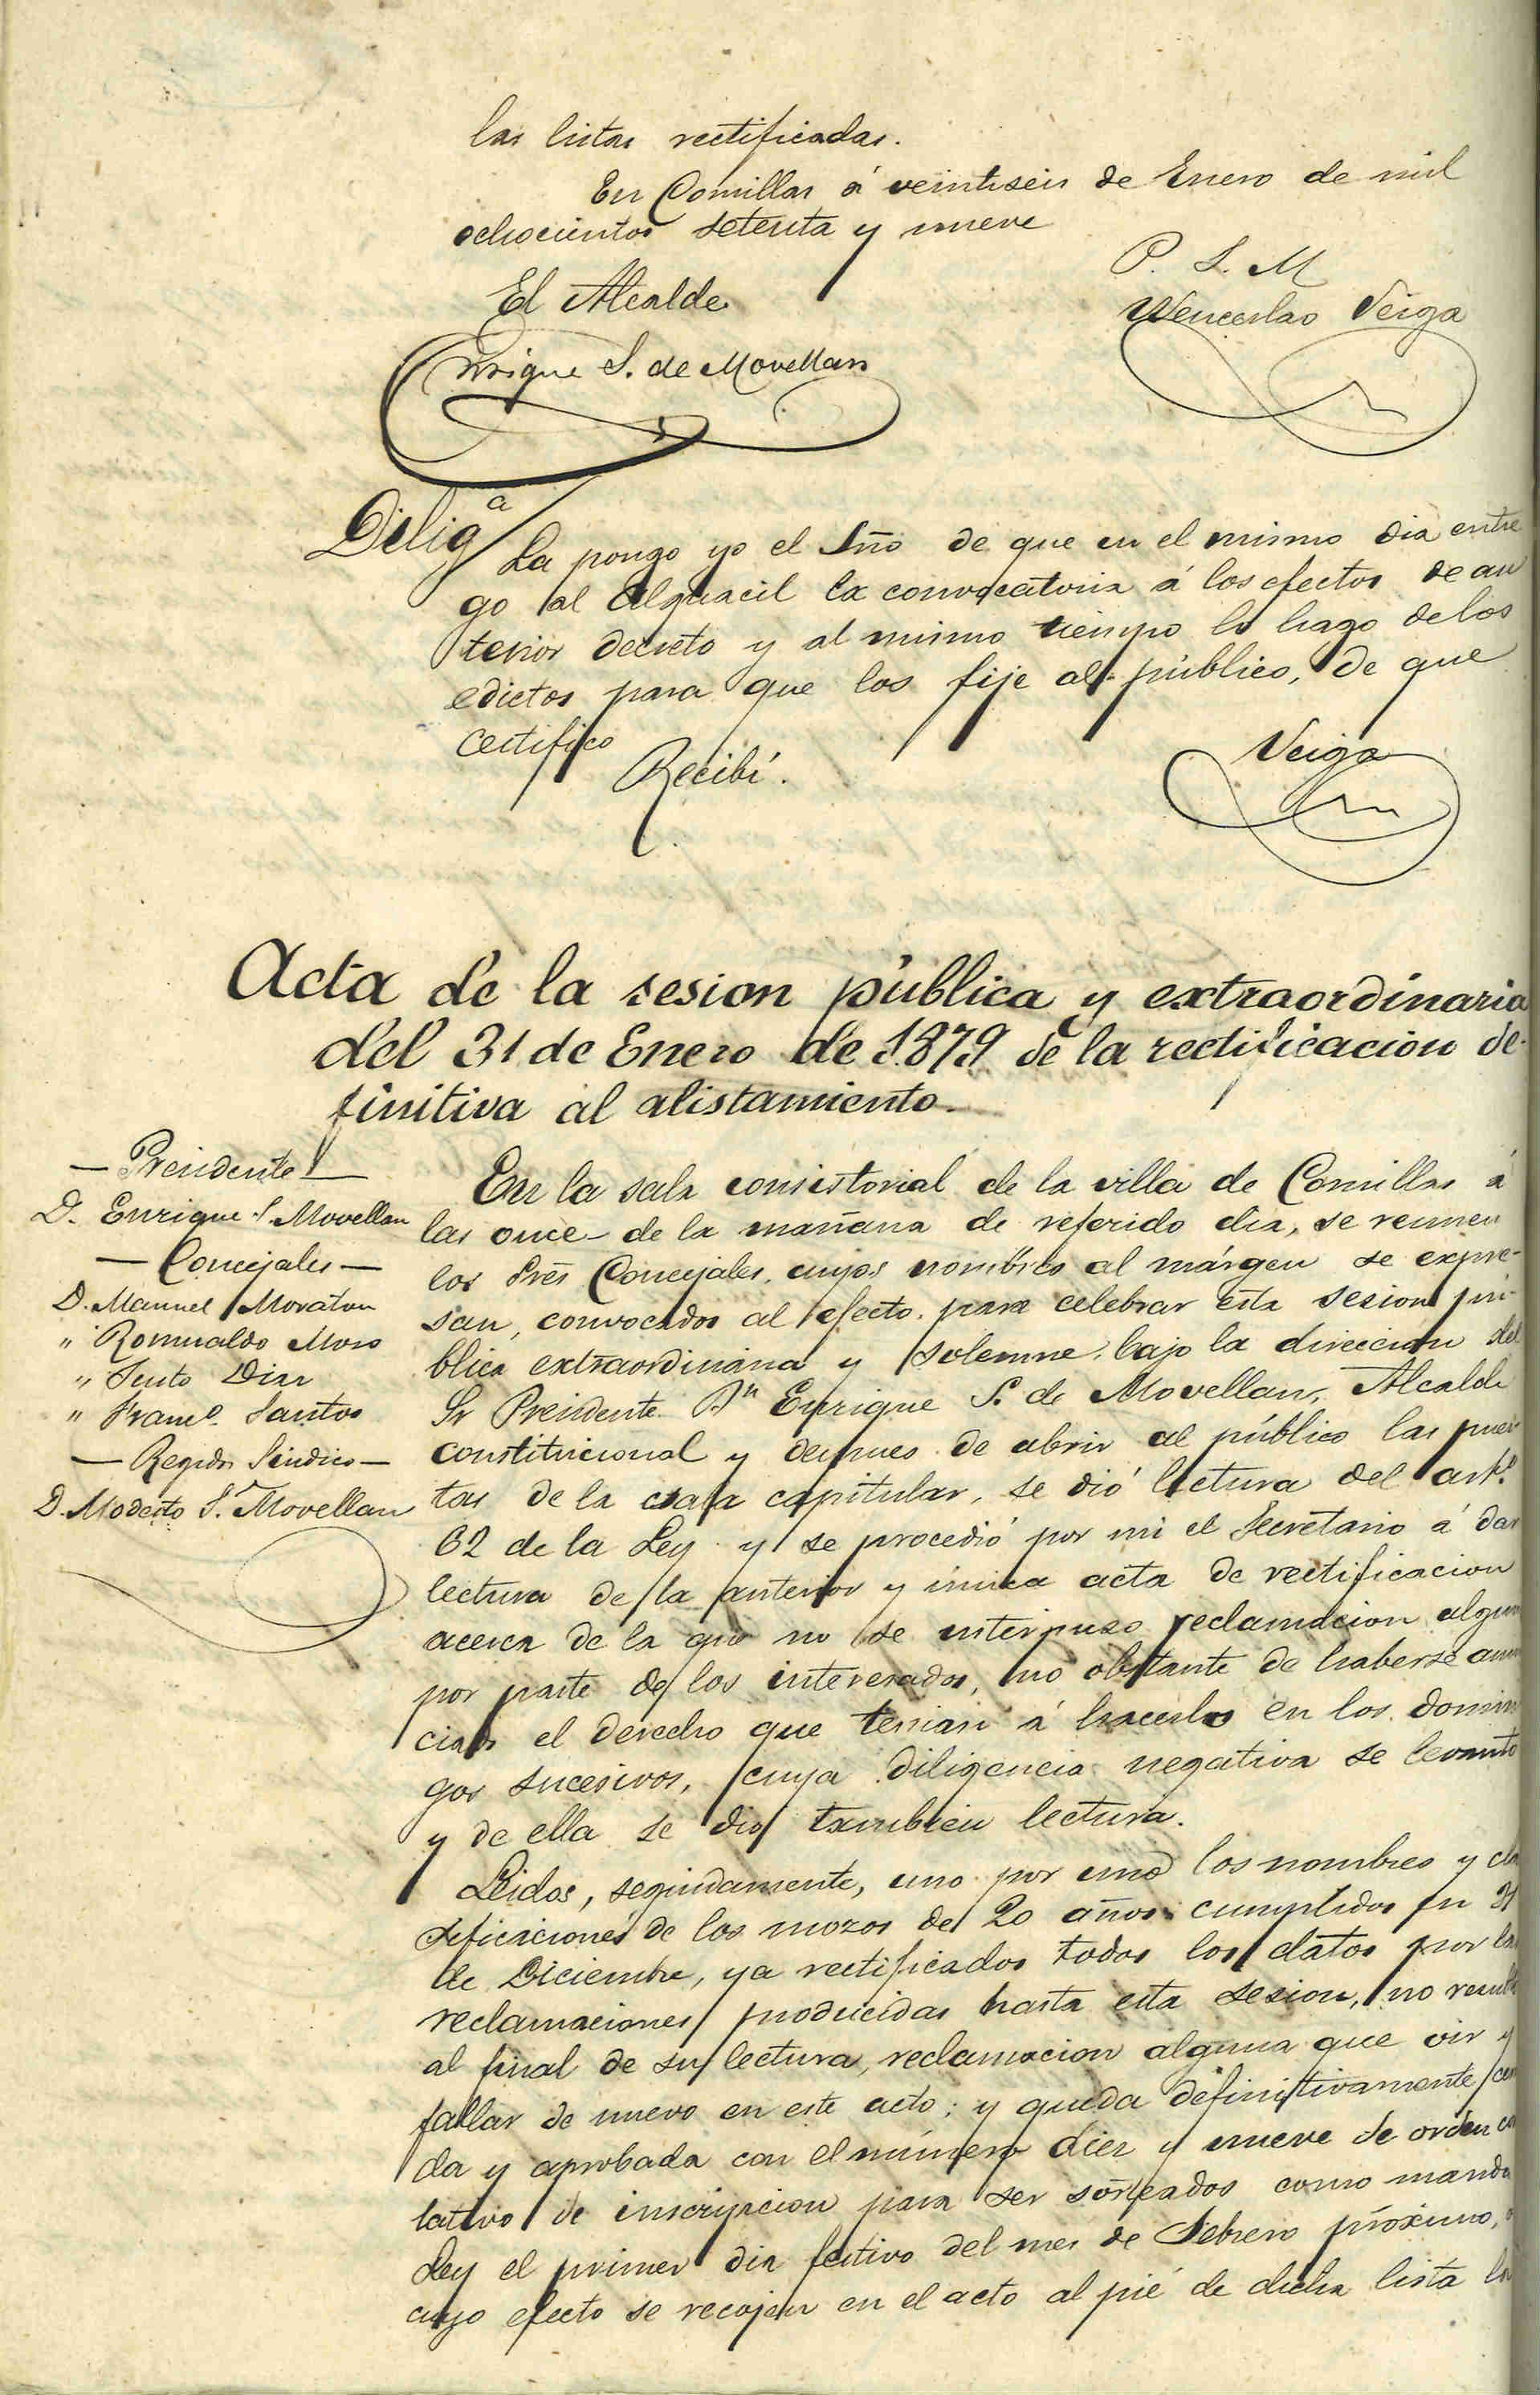 las listas rectificadas.
En Comillas á veintiseis de Enero de mil
ochocientos setenta y nueve
El Alcalde
P. S. M
Wenceslao Veiga
Enrique S. de Movellan
Dilig.ª
La pongo yo el Srio de que en el mismo dia entre
go al Alguacil la convocatoria á los efectos de an
terior decreto y al mismo tiempo lo hago de los
edictos para que los fije al público, de que
certifico
Recibí.
Veiga
Acta de la sesion pública y extraordinaria
del 31 de Enero de 1879 de la rectificacion de-
finitiva al alistamiento.
— Presidente —
D. Enrique S. Movellan
— Concejales —
D. Manuel Moraton
" Romualdo Moro
" Justo Diaz
" Franco. Santos
— Regidr Sindico —
D. Modesto S. Movellan
En la sala consistorial de la villa de Comillas á
las once de la mañana de referido dia, se reunen
los Sres Concejales, cuyos nombres al márgen se expre-
san, convocados al efecto para celebrar esta sesion pú-
blica extraordinaria y solemne, bajo la direccion del
Sr Presidente Dn Enrique S. de Movellan, Alcalde
constitucional y despues de abrir al público las puer
tas de la casa capitular, se dió lectura del artº.
62 de la Ley y se procedió por mi el Secretario á dar
lectura de la anterior y única acta de rectificacion
acerca de la que no se interpuso reclamacion algun
por parte de los interesados, no obstante de haberse anun
ciado el derecho que tenian á hacerlo en los domin
gos sucesivos, cuya diligencia negativa se levantó
y de ella se dió tambien lectura.
Leidos, seguidamente, uno por uno los nombres y cla
sificaciones de los mozos de 20 años cumplidos en 31
de Diciembre, ya rectificados todos los datos por las
reclamaciones producidas hasta esta sesion, no result
al final de su lectura, reclamacion alguna que oir y
fallar de nuevo en este acto; y queda definitivamente cerra
da y aprobada con el número diez y nueve de orden co
lativo de inscripcion para ser sorteados como manda
Ley el primer dia festivo del mes de Febrero próximo, á
cuyo efecto se recojen en el acto al pié de dicha lista las